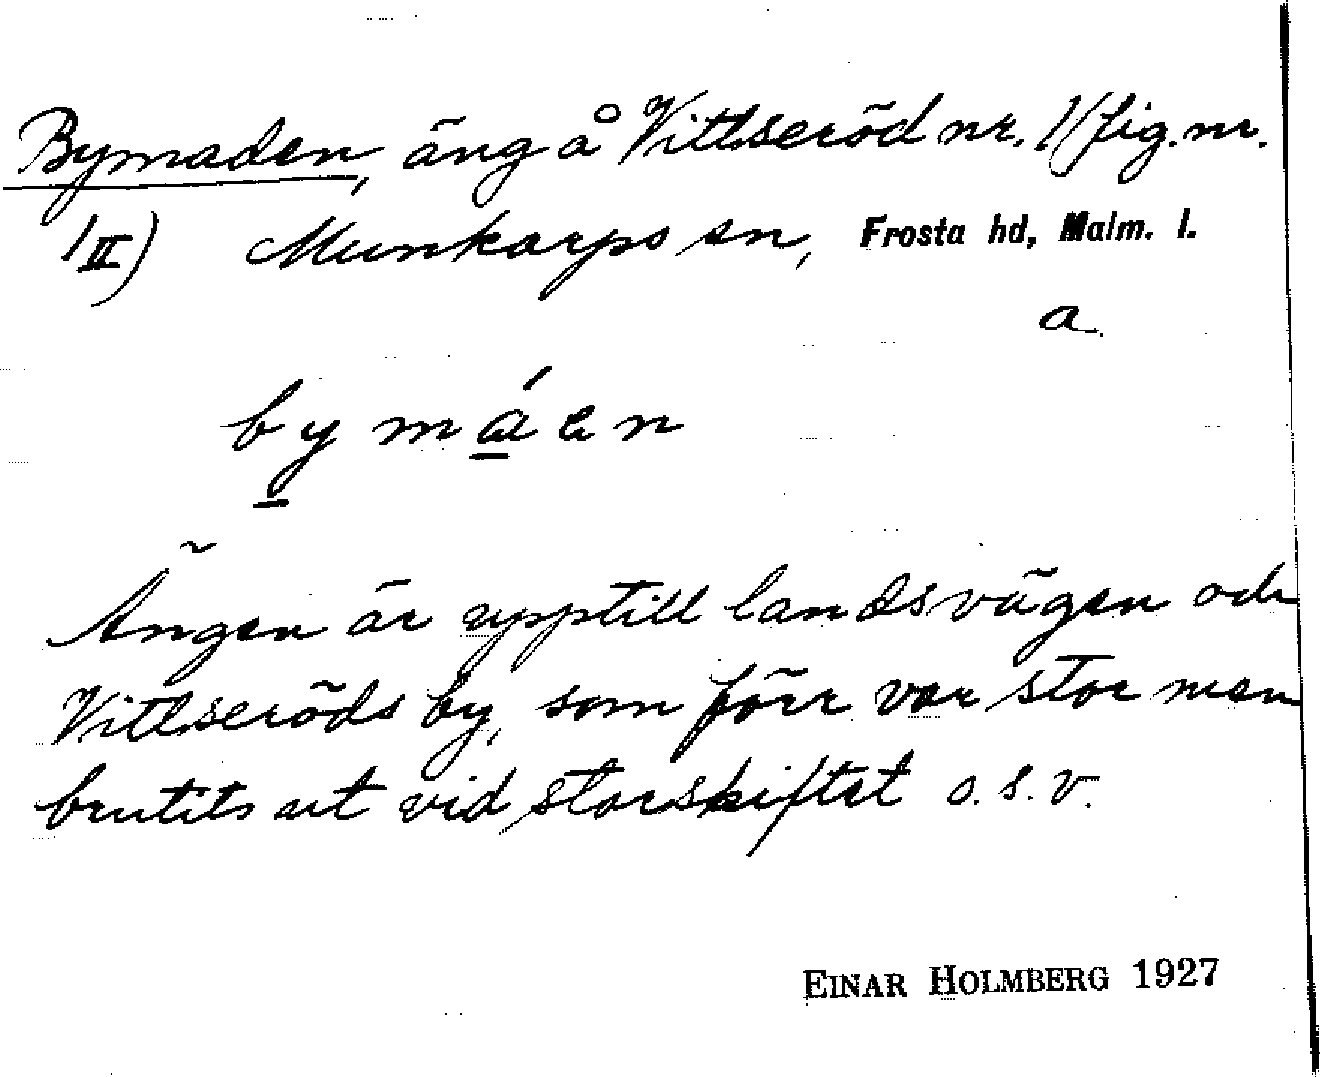 Bymaden, äng å Vittseröd nr. 1 (fig. nr.
1 II) Munkarps sn, Frosta hd, Malm. l.
a.
by máen
Ängen är upptill landsvägen och
Vittseröds by, som förr var stor men
brutits ut vid storskiftet o.s.v.
EINAR HOLMBERG 1927